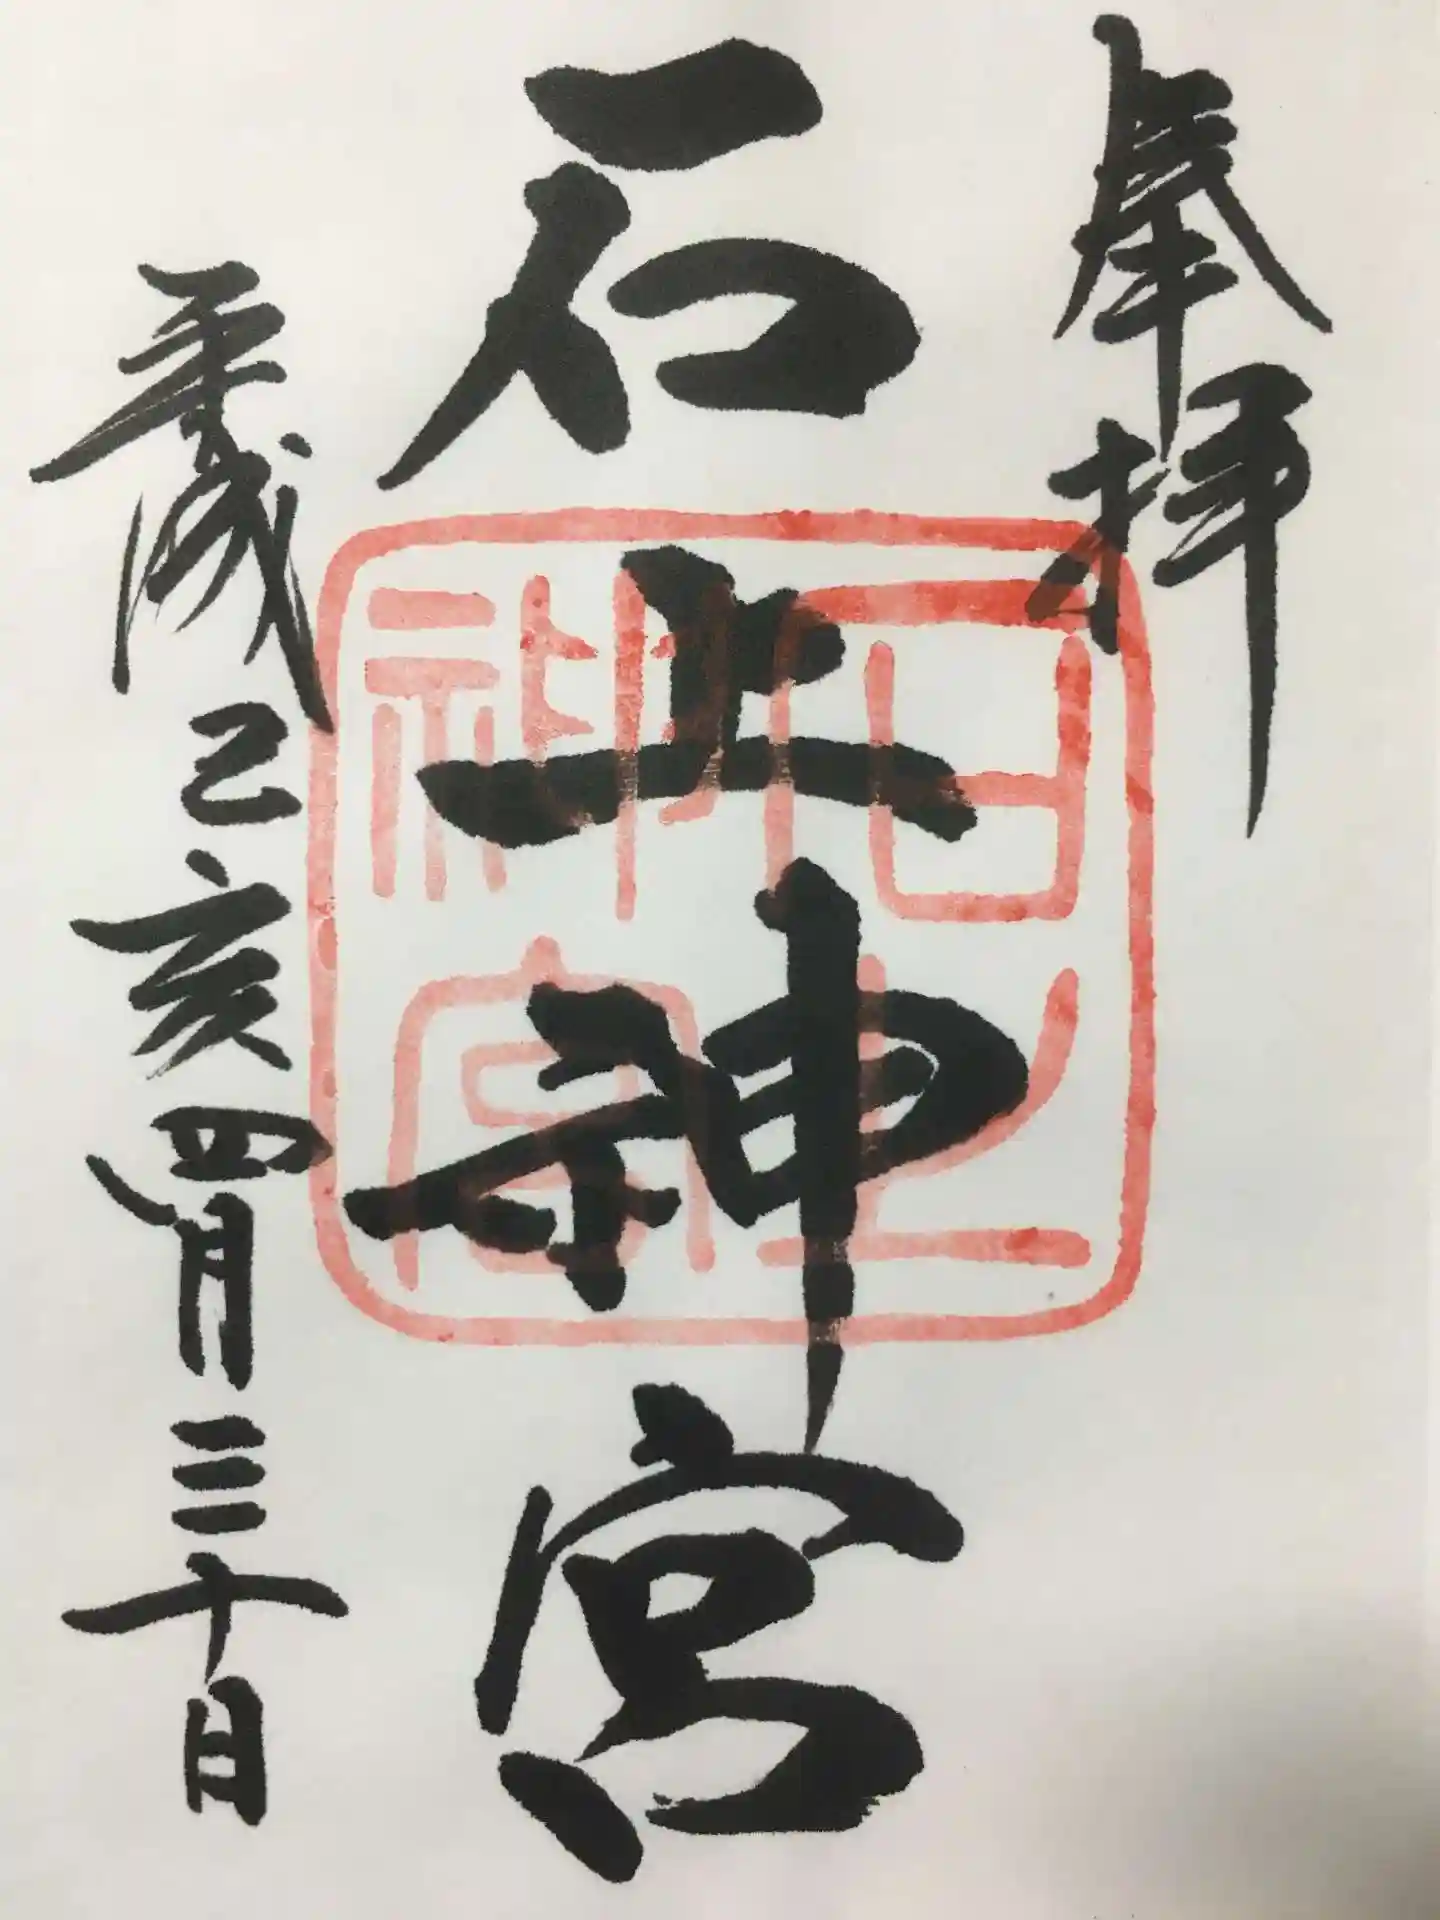 奉拝
石上神宮
平成己亥四月三十日
石上
神宮